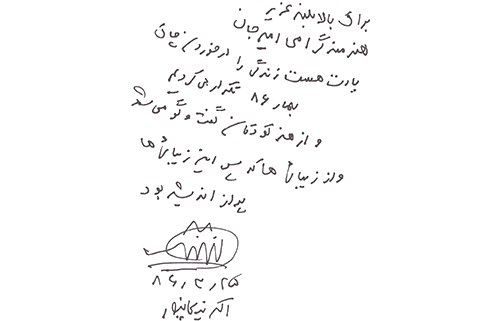 برای بالابلند عزیز
هنرمند گرامی امیرجان
یادت هست زندگی را در خوردن چای
بهار ۸۶ تکرار می‌کردیم
و از هنر کودکان گفت و گو می‌شد
و از زیبائی‌ها که پس این زیبائی‌ها
پر از اندیشه بود
۸۶٫۳٫۲۵
اکبر نیکانپور